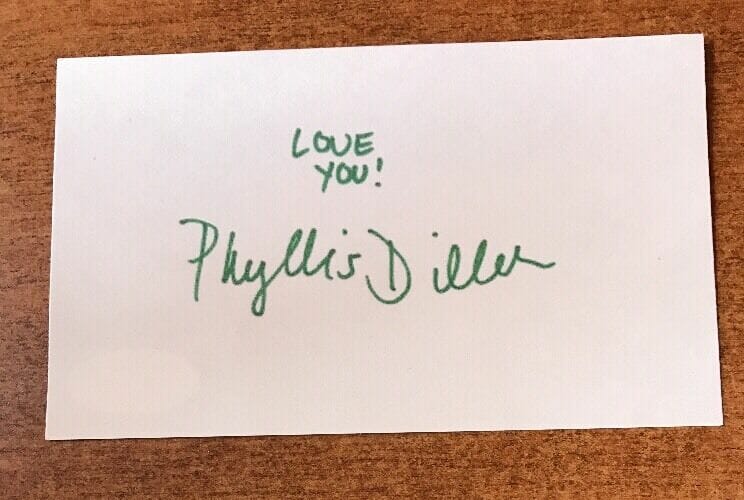 LOVE
YOU!
Phyllis Diller